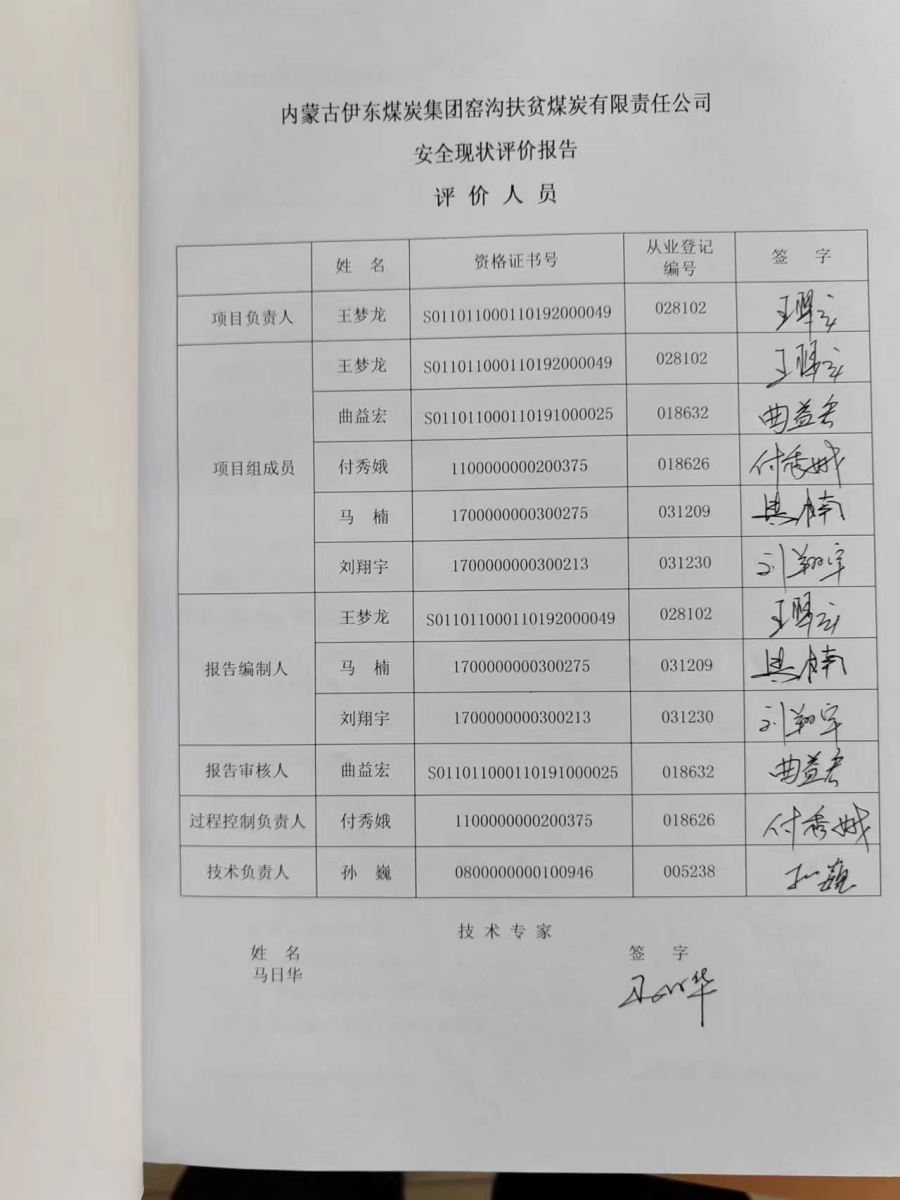 内蒙古伊东煤炭集团窑沟扶贫煤炭有限责任公司
安全现状评价报告
评价人员
姓 名 资格证书号 从业登记编号 签 字
项目负责人 王梦龙 S011011000110192000049 028102 王梦龙
项目组成员 王梦龙 S011011000110192000049 028102 王梦龙
曲益宏 S011011000110191000025 018632 曲益宏
付秀娥 1100000000200375 018626 付秀娥
马 楠 1700000000300275 031209 马楠
刘翔宇 1700000000300213 031230 刘翔宇
报告编制人 王梦龙 S011011000110192000049 028102 王梦龙
马 楠 1700000000300275 031209 马楠
刘翔宇 1700000000300213 031230 刘翔宇
报告审核人 曲益宏 S011011000110191000025 018632 曲益宏
过程控制负责人 付秀娥 1100000000200375 018626 付秀娥
技术负责人 孙 巍 0800000000100946 005238 孙巍
技术专家
姓 名 签 字
马日华 马日华